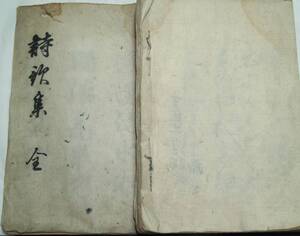 詩歌集 全